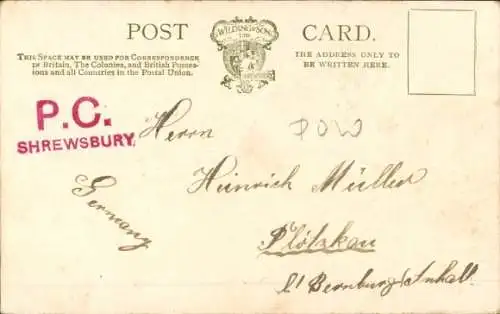 POST CARD.
WILDING & SON
LTD
THIS SPACE MAY BE USED FOR CORRESPONDENCE
IN BRITAIN, THE COLONIES, AND BRITISH POSSES-
SIONS AND ALL COUNTRIES IN THE POSTAL UNION.
THE ADDRESS ONLY TO
BE WRITTEN HERE.
P.C.
SHREWSBURY.
POW
Herrn
Heinrich Müller
Germany
Plötzkau
b/ Bernburg/Anhalt.